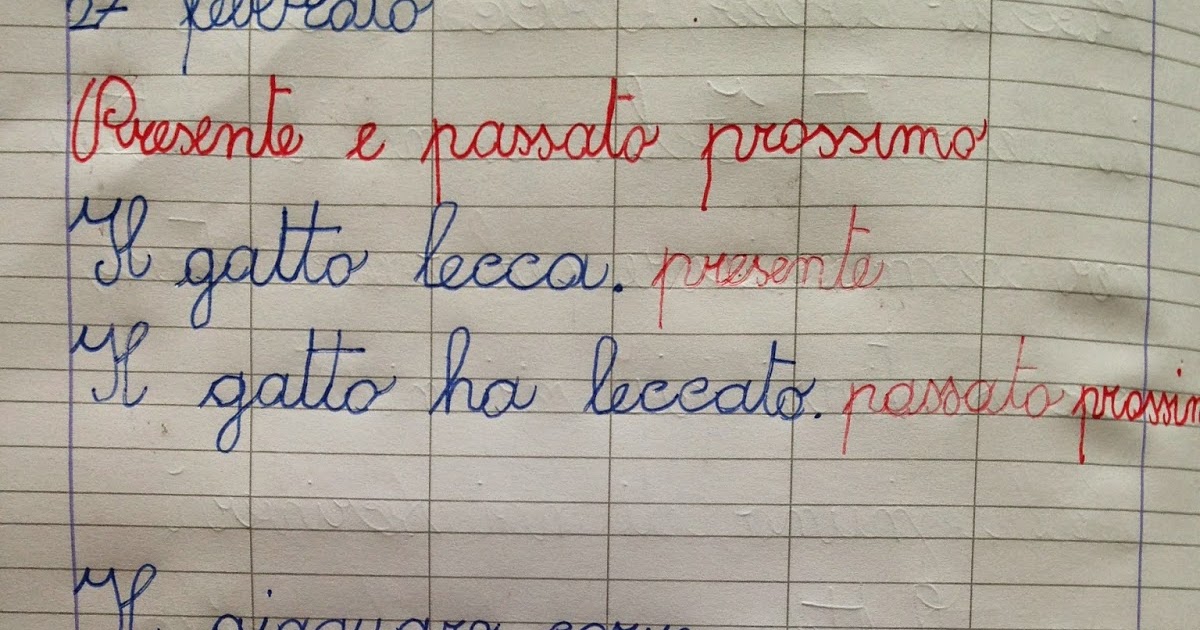 27 febbraio
Presente e passato prossimo
Il gatto lecca. presente
Il gatto ha leccato. passato prossim
Il giaguaro